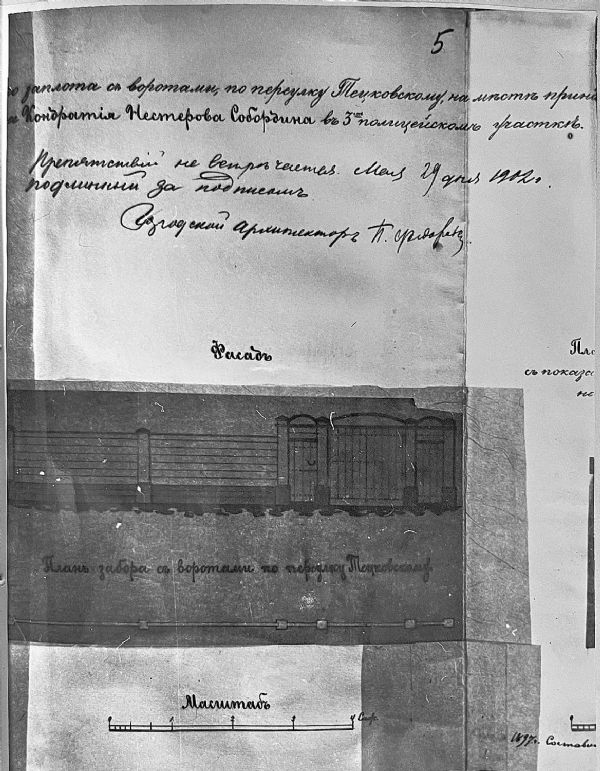 5
заплота съ воротами, по переулку Тецковскому, на мѣстѣ прин
Кондратія Нестерова Собордина въ 3емъ полицейскомъ участкѣ.
Препятствій не встрѣчается. Мая 29 дня 1902 г.
подлинный за подписомъ
Городской Архитекторъ П.
Фасадъ
Пла
съ показа
не
Планъ забора съ воротами по переулку Тецковскому.
Масштабъ
1 2 3 4 Саж.
1897 г. Состави